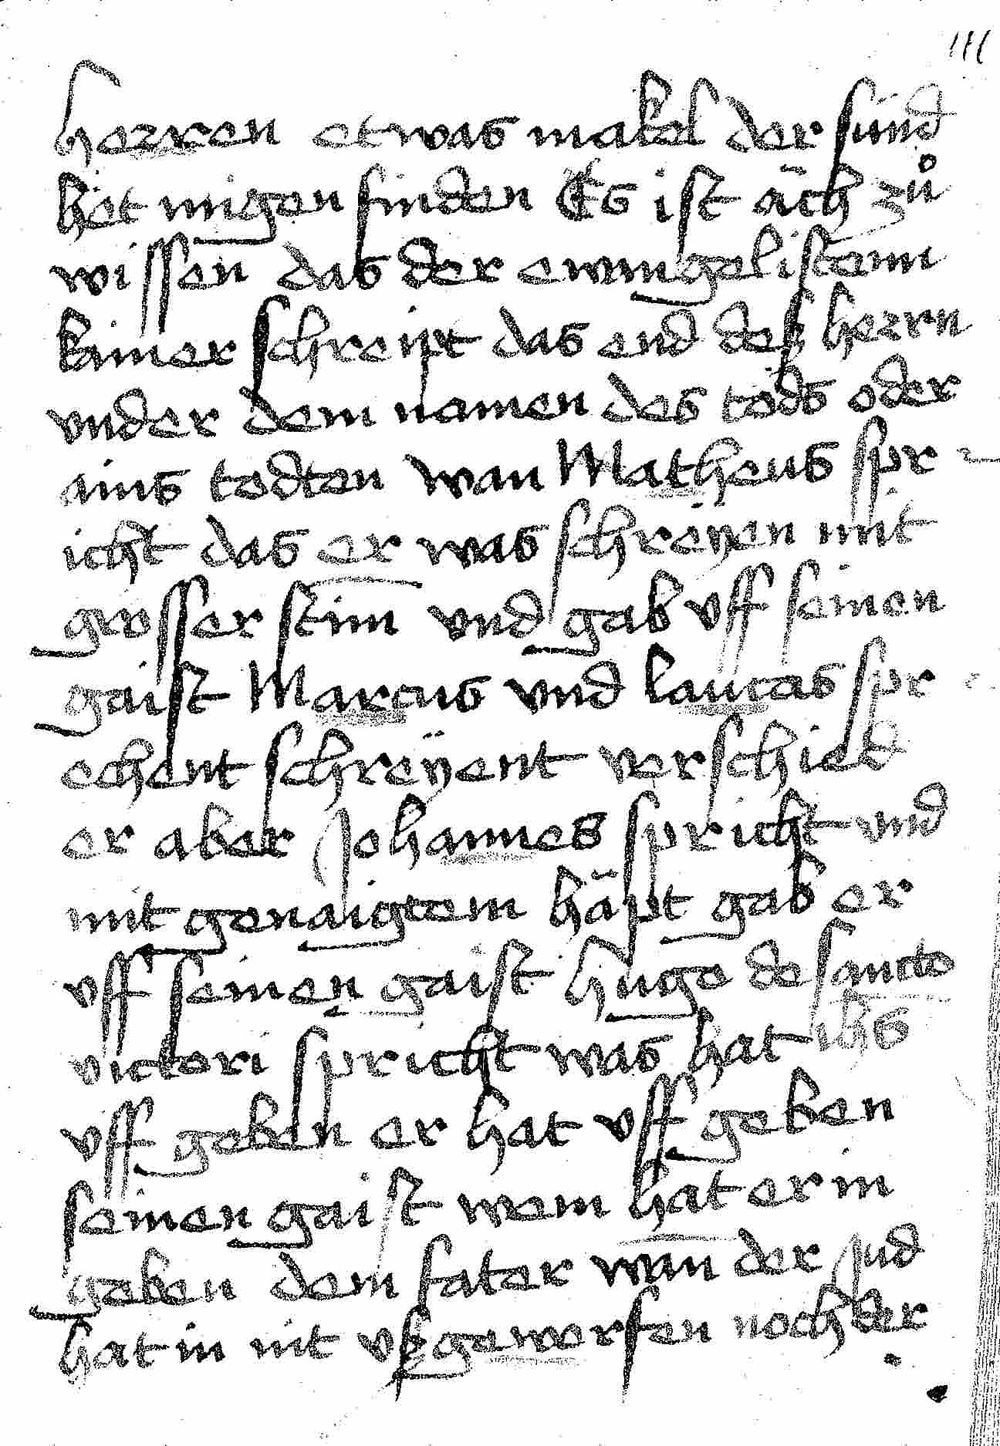 111
herren etwas makel der sünd
het migen finden Es ist äch zů
wissen das der ewangelistenn
kainer schreipt das end deß herrn
vnder dem namen des tods oder
ains todten wan Matheus spr
icht das er was schreÿen mit
grosser stim vnd gab vff seinen
gaist Marcus vnd laucas spr
echent schreÿent verschied
er aber Johannes spricht vnd
mit genaigtem häpt gab er
vff seinen gaist hugo de sancto
victori spricht was hat ihs
vff geben er hat vff geben
seinen gaist wem hat er in
geben dem fater wan der Jud
hat in nit vßgeworfen noch der